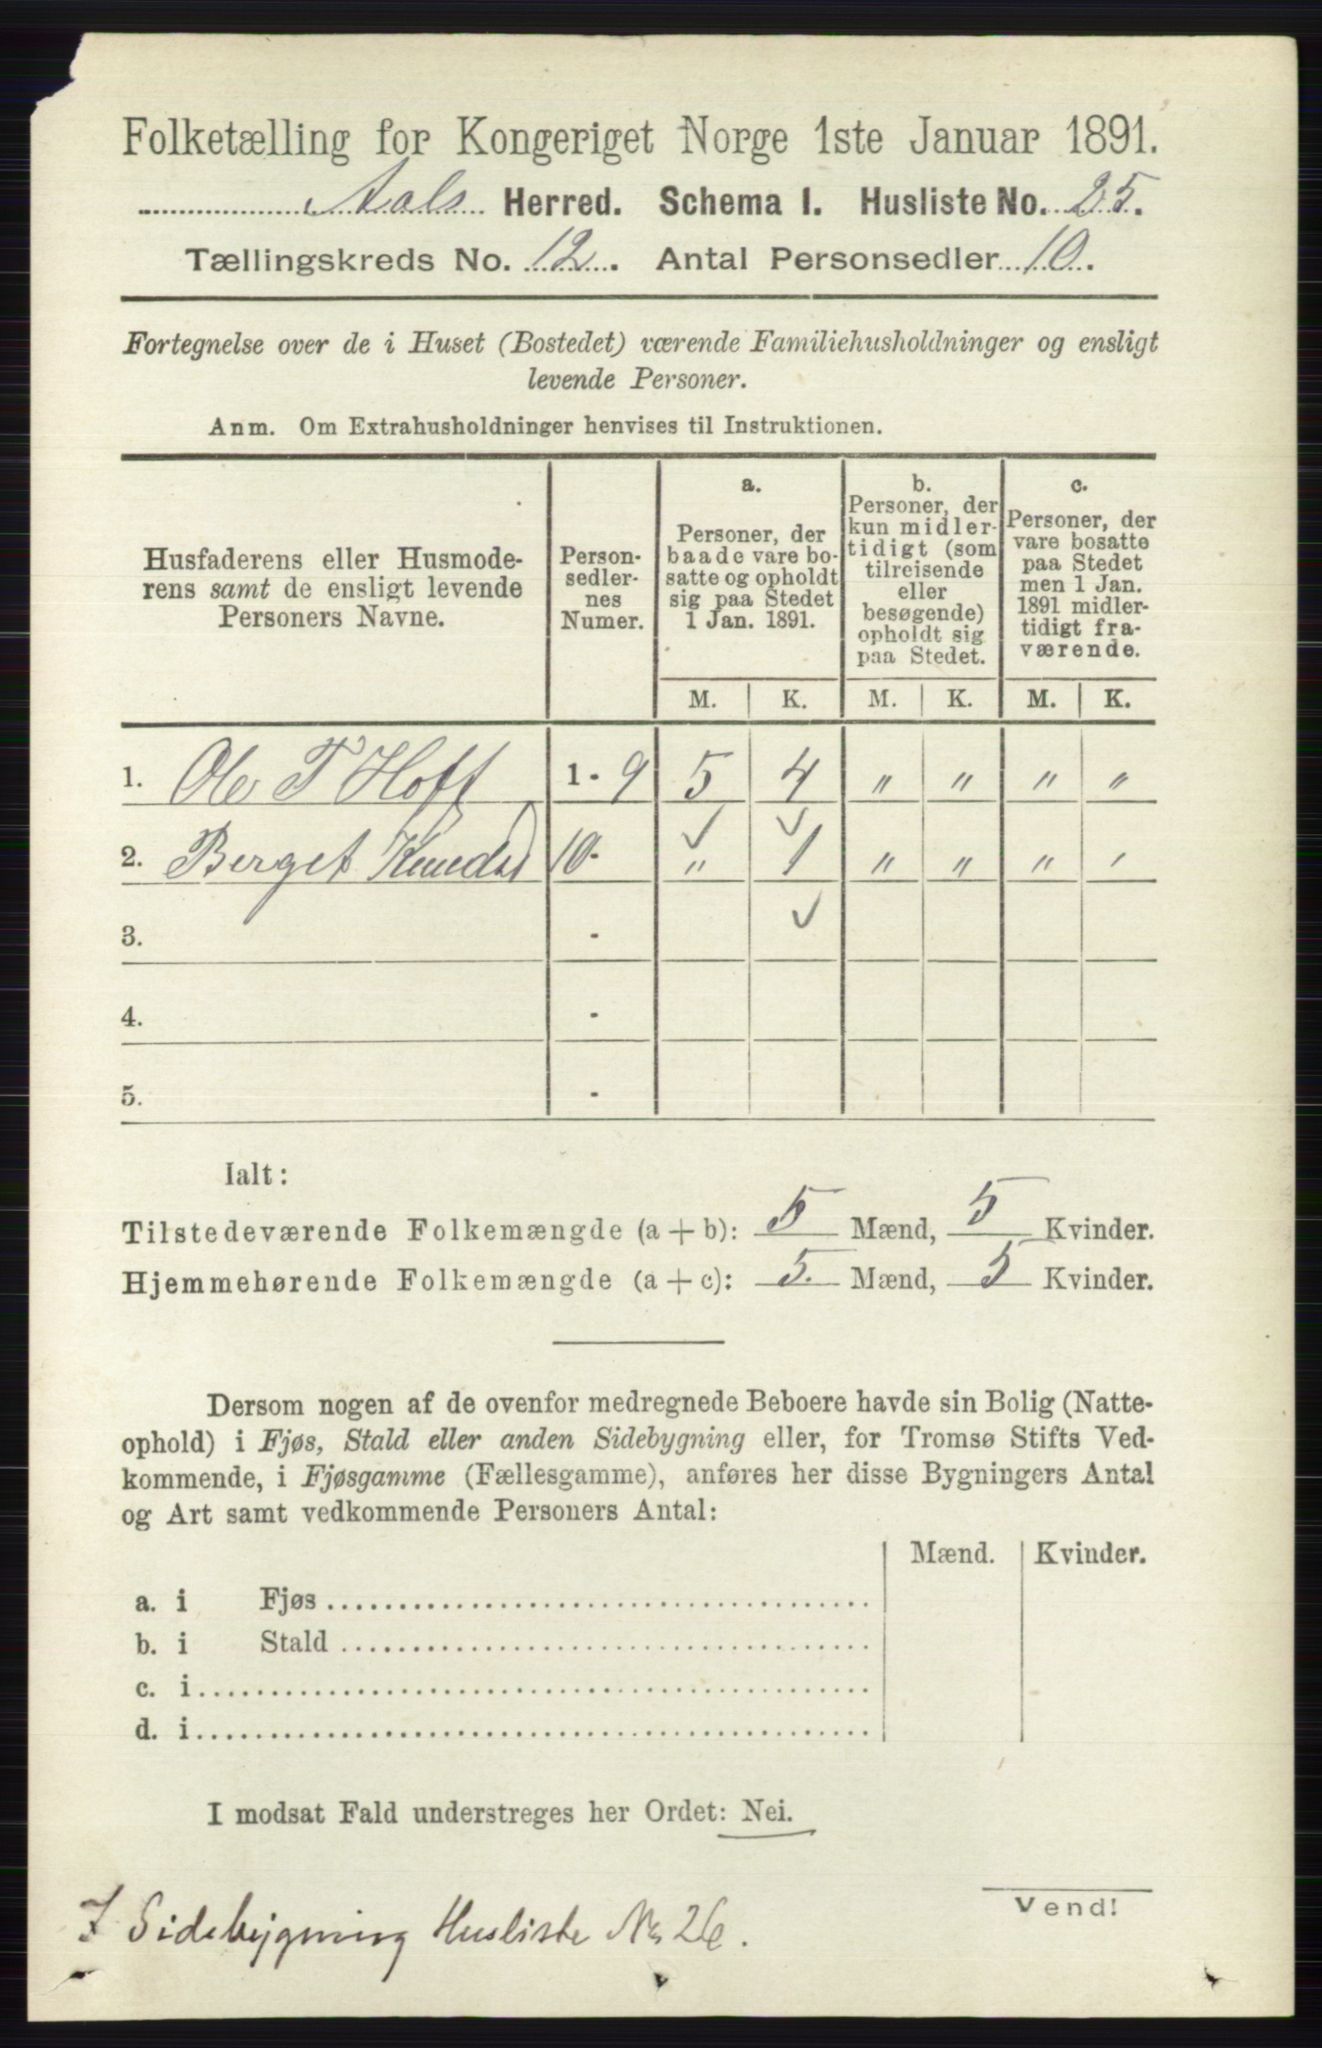 Folketælling for Kongeriget Norge 1ste Januar 1891.
Aals Herred. Schema I. Husliste No. 25.
Tællingskreds No. 12. Antal Personsedler 10.
Fortegnelse over de i Huset (Bostedet) værende Familiehusholdninger og ensligt
levende Personer.
Anm. Om Extrahusholdninger henvises til Instruktionen.
Husfaderens eller Husmode-
rens samt de ensligt levende
Personers Navne.
Person-
sedler-
nes
Numer.
a.
Personer, der
baade vare bo-
satte og opholdt
sig paa Stedet
1 Jan. 1891.
b.
Personer, der
kun midler-
tidigt (som
tilreisende
eller
besøgende)
opholdt sig
paa Stedet.
c.
Personer, der
vare bosatte
paa Stedet
men 1 Jan.
1891 midler-
tidigt fra-
værende.
M. K. M. K. M. K.
1. Ole T Hoff 1 - 9 5 4 „ „ „ „
2. Berget Knudsd 10 - „ 1 „ „ „ „
3. -
4. -
5. -
Ialt:
Tilstedeværende Folkemængde (a + b): 5 Mænd, 5 Kvinder.
Hjemmehørende Folkemængde (a + c): 5. Mænd, 5 Kvinder.
Dersom nogen af de ovenfor medregnede Beboere havde sin Bolig (Natte-
ophold) i Fjøs, Stald eller anden Sidebygning eller, for Tromsø Stifts Ved-
kommende, i Fjøsgamme (Fællesgamme), anføres her disse Bygningers Antal
og Art samt vedkommende Personers Antal:
Mænd. Kvinder.
a. i Fjøs
b. i Stald
c. i
d. i
I modsat Fald understreges her Ordet: Nei.
Vend!
I Sidebygning Husliste No 26.